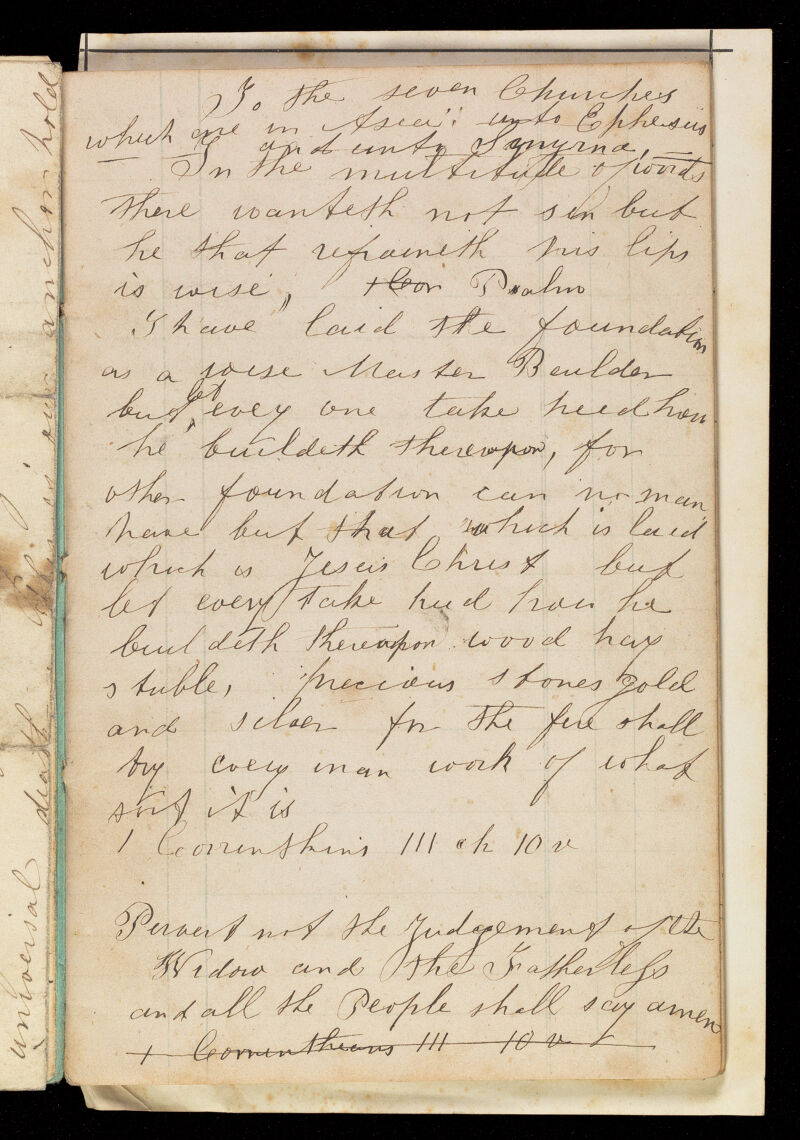 To the seven Churches
which are in Asia: unto Ephesus
and unto Smyrna,
In the multitude of words
there wanteth not sin but
he that refraineth his lips
is wise, 1 Cor Psalm
I have laid the foundation
as a wise Master Beulder
but let evey one take heed how
he buildeth thereupon, for
other foundation can no man
have but that which is laid
which is Jesus Christ but
let every take hud how he
buildeth thereupon wood hay
stuble, precious stones gold
and silver for the fire shall
try every man work of what
sort it is
1 Corrinthins 111 ch 10 v
Pervert not the Judgement of the
Widow and the Fatherless
and all the People shall say amen
1 Corrinthians 111 10 v
universal death this is our anchor hold